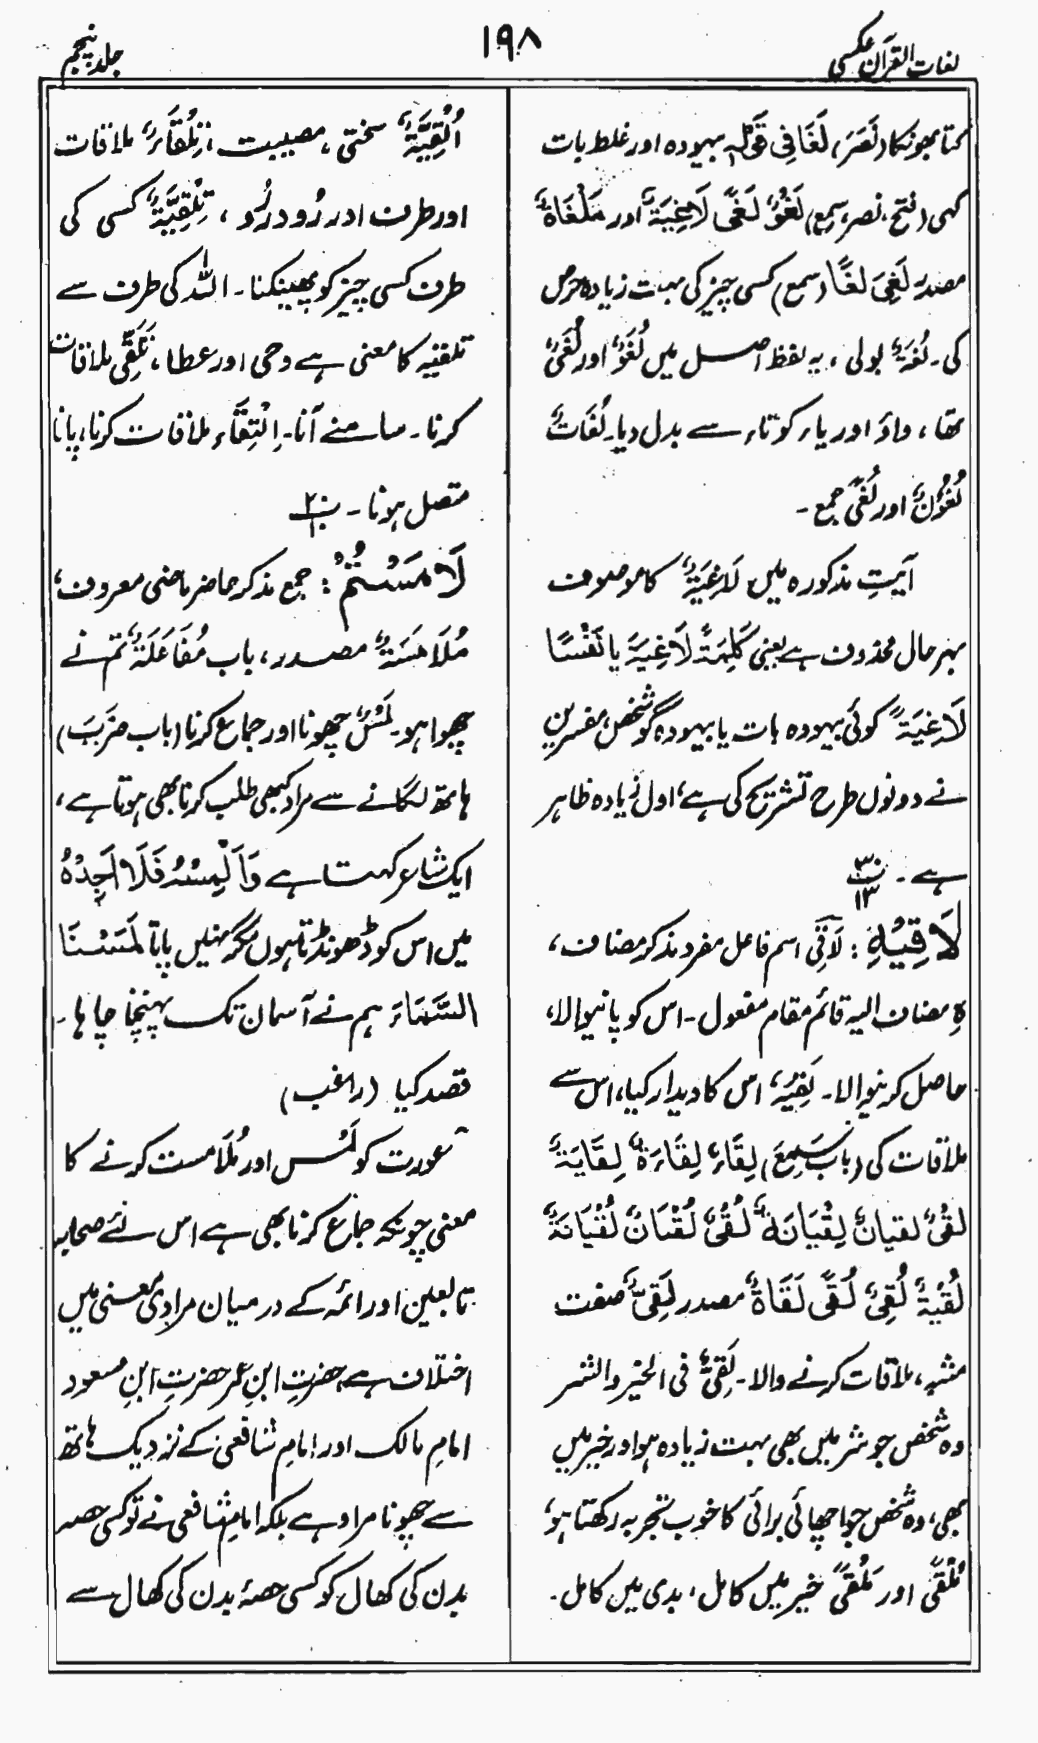 لغات القرآن عکسی
۱۹۸
جلد پنجم
کتا بھونکا (نَصَرَ) لَغَا فِي قَوْلِهٖ بیہودہ اور غلط بات
کہی (فتح، نصر، سمع) لَغْوٌ لَغًی لَاغِیَةٌ اور مَلْغَاةٌ
مصدر لَغِیَ لَغًا (سمع) کسی چیز کی بہت زیادہ حرص
کی۔ لُغَةٌ بولی، یہ لفظ اصل میں لُغَوٌ اور لُغَیٌ
تھا، واؤ اور یاء کو تاء سے بدل دیا۔ لُغَاتٌ
لُغُوْنَ اور لُغًی جمع۔
آیتِ مذکورہ میں لَاغِیَةٌ کا موصوف
بہر حال محذوف ہے یعنی کَلِمَةً لَاغِیَةً یا نَفْسًا
لَاغِیَةً کوئی بیہودہ بات یا بیہودہ گو شخص مفسرین
نے دونوں طرح تشریح کی ہے، اول زیادہ ظاہر
ہے۔ پ۳۰ ۱۳
لَاقِیْهِ: لَاقِی اسم فاعل مفرد مذکر مضاف،
ہِ مضاف الیہ قائم مقام مفعول۔ اس کو پانیوالا،
حاصل کرنیوالا۔ لَقِیَهٗ اس کا دیدار کیا، اس سے
ملاقات کی (باب سَمِعَ) لِقَاءٌ لِقَاءَةٌ لِقَایَةٌ
لقیٌ لقیانٌ لِقْیَانَةٌ لُقِیٌّ لُقْیَانٌ لُقْیَانَةٌ
لُقْیَةٌ لُقِیٌّ لُقًی لَقَاةٌ مصدر لَقِیٌّ صفت
مشبہ، ملاقات کرنے والا۔ لَقِیٌّ فی الخیر والشر
وہ شخص جو شر میں بھی بہت زیادہ ہو اور خیر میں
بھی، وہ شخص جو اچھائی برائی کا خوب تجربہ رکھتا ہو،
مُلْقًّی اور مَلْقًی خیر میں کامل، بدی میں کامل۔
اُلْقِیَّةٌ سختی، مصیبت، تِلْقَاءَ ملاقات
اور طرف اور رُو در رُو، تِلْقِیَّةٌ کسی کی
طرف کسی چیز کو پھینکنا۔ اللہ کی طرف سے
تلقیہ کا معنی ہے وحی اور عطا، تَلَقِّی ملاقات
کرنا۔ سامنے آنا۔ اِلْتِقَاء ملاقات کرنا، پانا
متصل ہونا۔ پ۲۰ ۱۰
لَامَسْتُمْ: جمع مذکر حاضر ماضی معروف،
مُلَامَسَةٌ مصدر، باب مُفَاعَلَةٌ تم نے
چھوا ہو۔ لَمْسٌ چھونا اور جماع کرنا (باب ضَرَبَ)
ہاتھ لگانے سے مراد کبھی طلب کرنا بھی ہوتا ہے،
ایک شاعر کہتا ہے وَاَلْمِسُهٗ فَلَا اَجِدُهٗ
میں اس کو ڈھونڈتا ہوں مگر نہیں پاتا لَمَسْنَا
السَّمَاءَ ہم نے آسمان تک پہنچنا چاہا۔
قصد کیا (راغب)
عورت کو لَمْس اور مُلَامست کرنے کا
معنی چونکہ جماع کرنا بھی ہے اس لئے صحابہ
تابعین اور ائمہ کے درمیان مرادی معنی میں
اختلاف ہے، حضرتِ ابنِ عمر حضرتِ ابنِ مسعود
امام مالک اور امام شافعی کے نزدیک ہاتھ
سے چھونا مراد ہے بلکہ امام شافعی نے تو کسی حصہ
بدن کی کھال کو کسی حصۂ بدن کی کھال سے